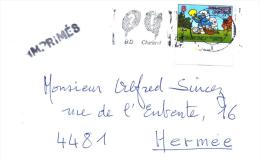 IMPRIMÉS
B.D. Charleroi
Monsieur Wilfred Sincez
rue de l'Enbente, 16
4481 Hermée